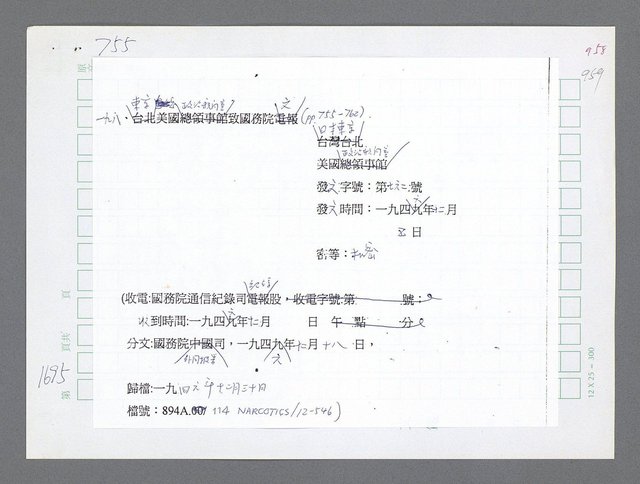 755
958
959
一九八、台北美國總領事館致國務院電報 (pp. 755-762).
東京 政治顧問室 文
日本東京
台灣台北
政治顧問室
美國總領事館
發文字號：第七六二號
發文時間：一九四九年十二月
五日
密等：機密
(收電：國務院通信紀錄司電報股，收電字號：第 號：
收到時間：一九四九年十二月 日 午 點 分
分文：國務院中國司，一九四九年十二月十八日，
六
1695
歸檔：一九四六年十二月三十日
檔號：894A.00/ 114 NARCOTICS/12-546)
第 頁共 頁
12 X 25 = 300